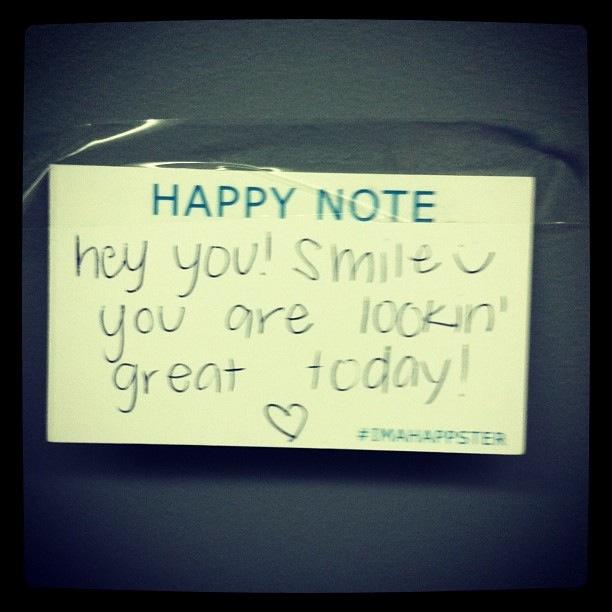 HAPPY NOTE
hey you! Smile
you are lookin'
great today!
#IMAHAPPSTER